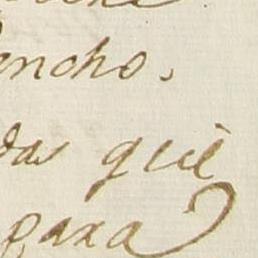 encho.
das que
para